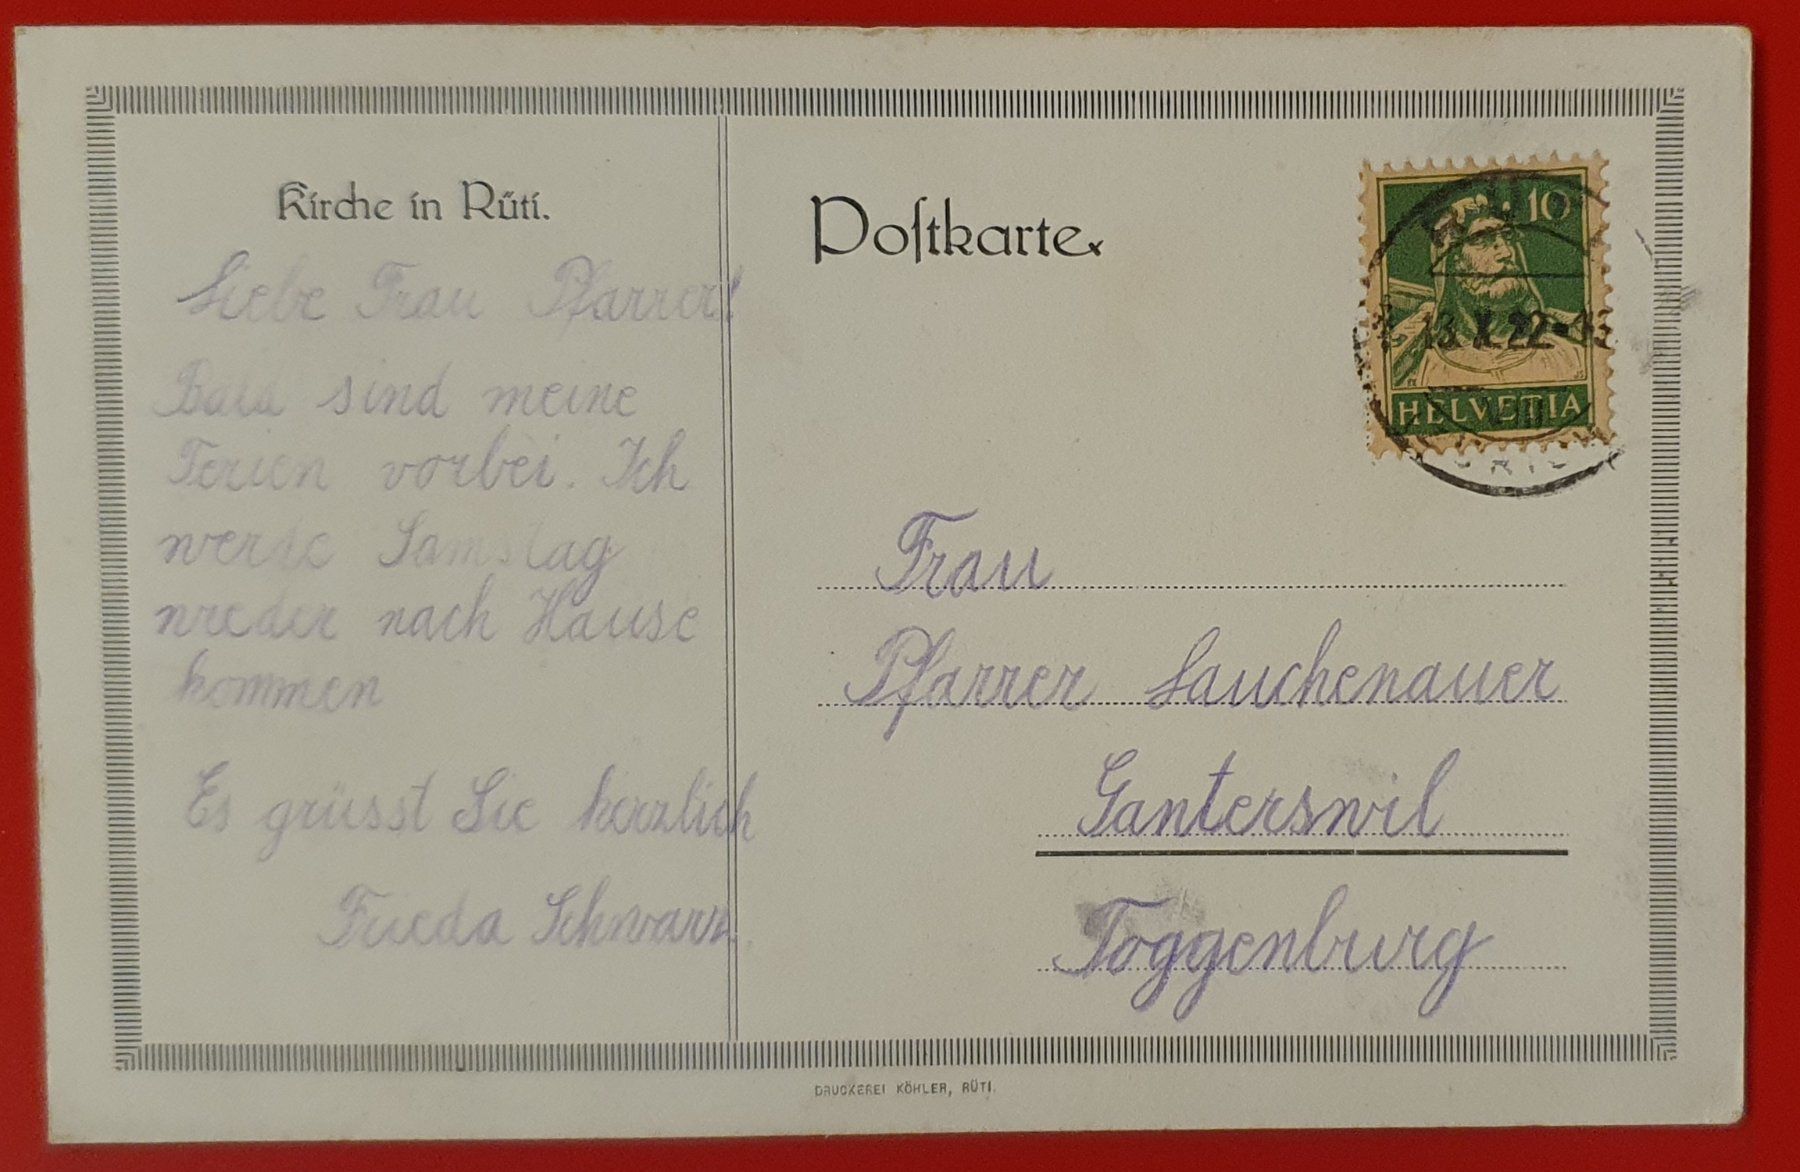 Kirche in Rüti.
Liebe Frau Pfarrer!
Bald sind meine
Ferien vorbei. Ich
werde Samstag
wieder nach Hause
kommen
Es grüsst Sie herzlich
Frieda Schwarz.
Postkarte
10
13.X.22
HELVETIA
Frau
Pfarrer Lauchenauer
Ganterswil
Toggenburg
DRUCKEREI KÖHLER, RÜTI.